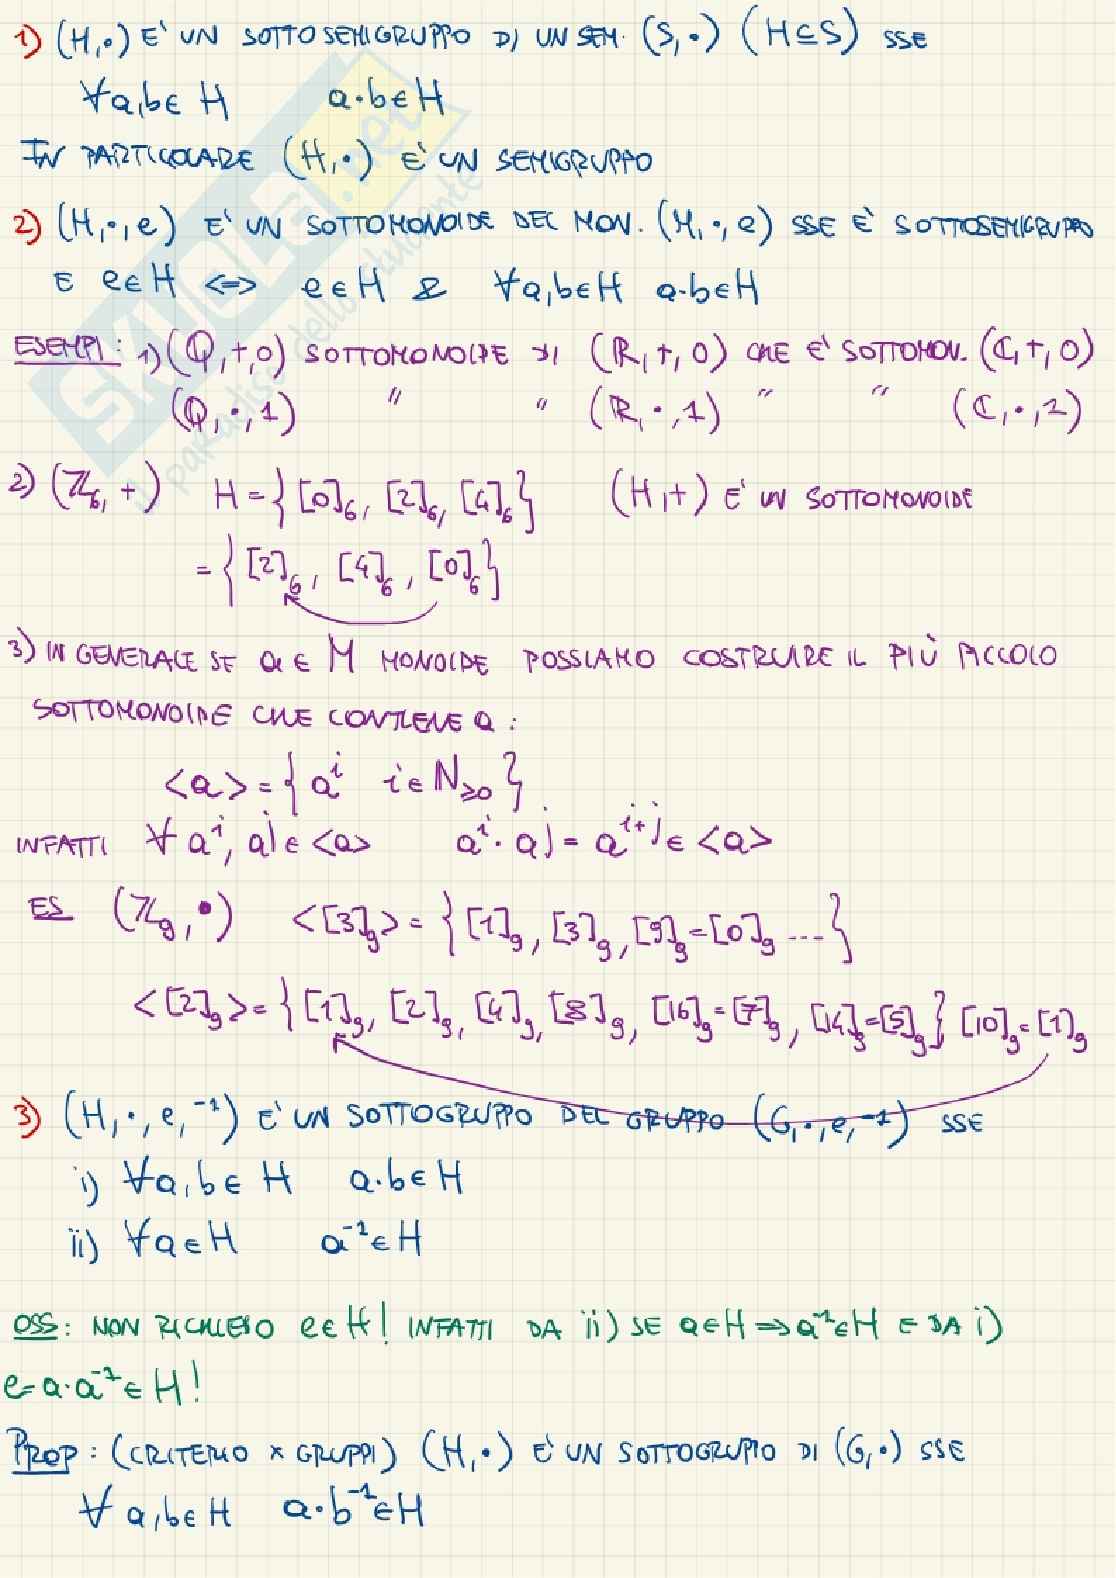 1) (H,·) E' UN SOTTOSEMIGRUPPO DI UN SEM. (S,·) (H⊆S) SSE
∀a,b∈H a·b∈H
IN PARTICOLARE (H,·) E' UN SEMIGRUPPO
2) (H,·,e) E' UN SOTTOMONOIDE DEL MON. (M,·,e) SSE È SOTTOSEMIGRUPPO
E e∈H <=> e∈H & ∀a,b∈H a·b∈H
ESEMPI: 1) (Q,+,0) SOTTOMONOIDE DI (R,+,0) CHE E' SOTTOMON. (C,+,0)
(Q,·,1) " " (R,·,1) " " (C,·,1)
2) (Z₆,+) H={[0]₆, [2]₆, [4]₆} (H,+) E' UN SOTTOMONOIDE
={[2]₆, [4]₆, [0]₆}
3) IN GENERALE SE a∈M MONOIDE POSSIAMO COSTRUIRE IL PIÙ PICCOLO
SOTTOMONOIDE CHE CONTIENE a:
<a>={aⁱ i∈N≥0}.
INFATTI ∀ aⁱ, aʲ∈<a> aⁱ·aʲ=aⁱ⁺ʲ∈<a>
ES (Z₉,·) <[3]₉>={[1]₉, [3]₉, [9]₉=[0]₉ ...}
<[2]₉>={[1]₉, [2]₉, [4]₉, [8]₉, [16]₉=[7]₉, [14]₉=[5]₉} [10]₉=[1]₉
3) (H,·,e,⁻¹) E' UN SOTTOGRUPPO DEL GRUPPO (G,·,e,⁻¹) SSE
i) ∀a,b∈H a·b∈H
ii) ∀a∈H a⁻¹∈H
OSS: NON RICHIESO e∈H! INFATTI DA ii) SE a∈H⇒a⁻¹∈H E DA i)
e=a·a⁻¹∈H!
PROP: (CRITERIO × GRUPPI) (H,·) E' UN SOTTOGRUPPO DI (G,·) SSE
∀ a,b∈H a·b⁻¹∈H
SKUOLA.net
il paradiso dello studente